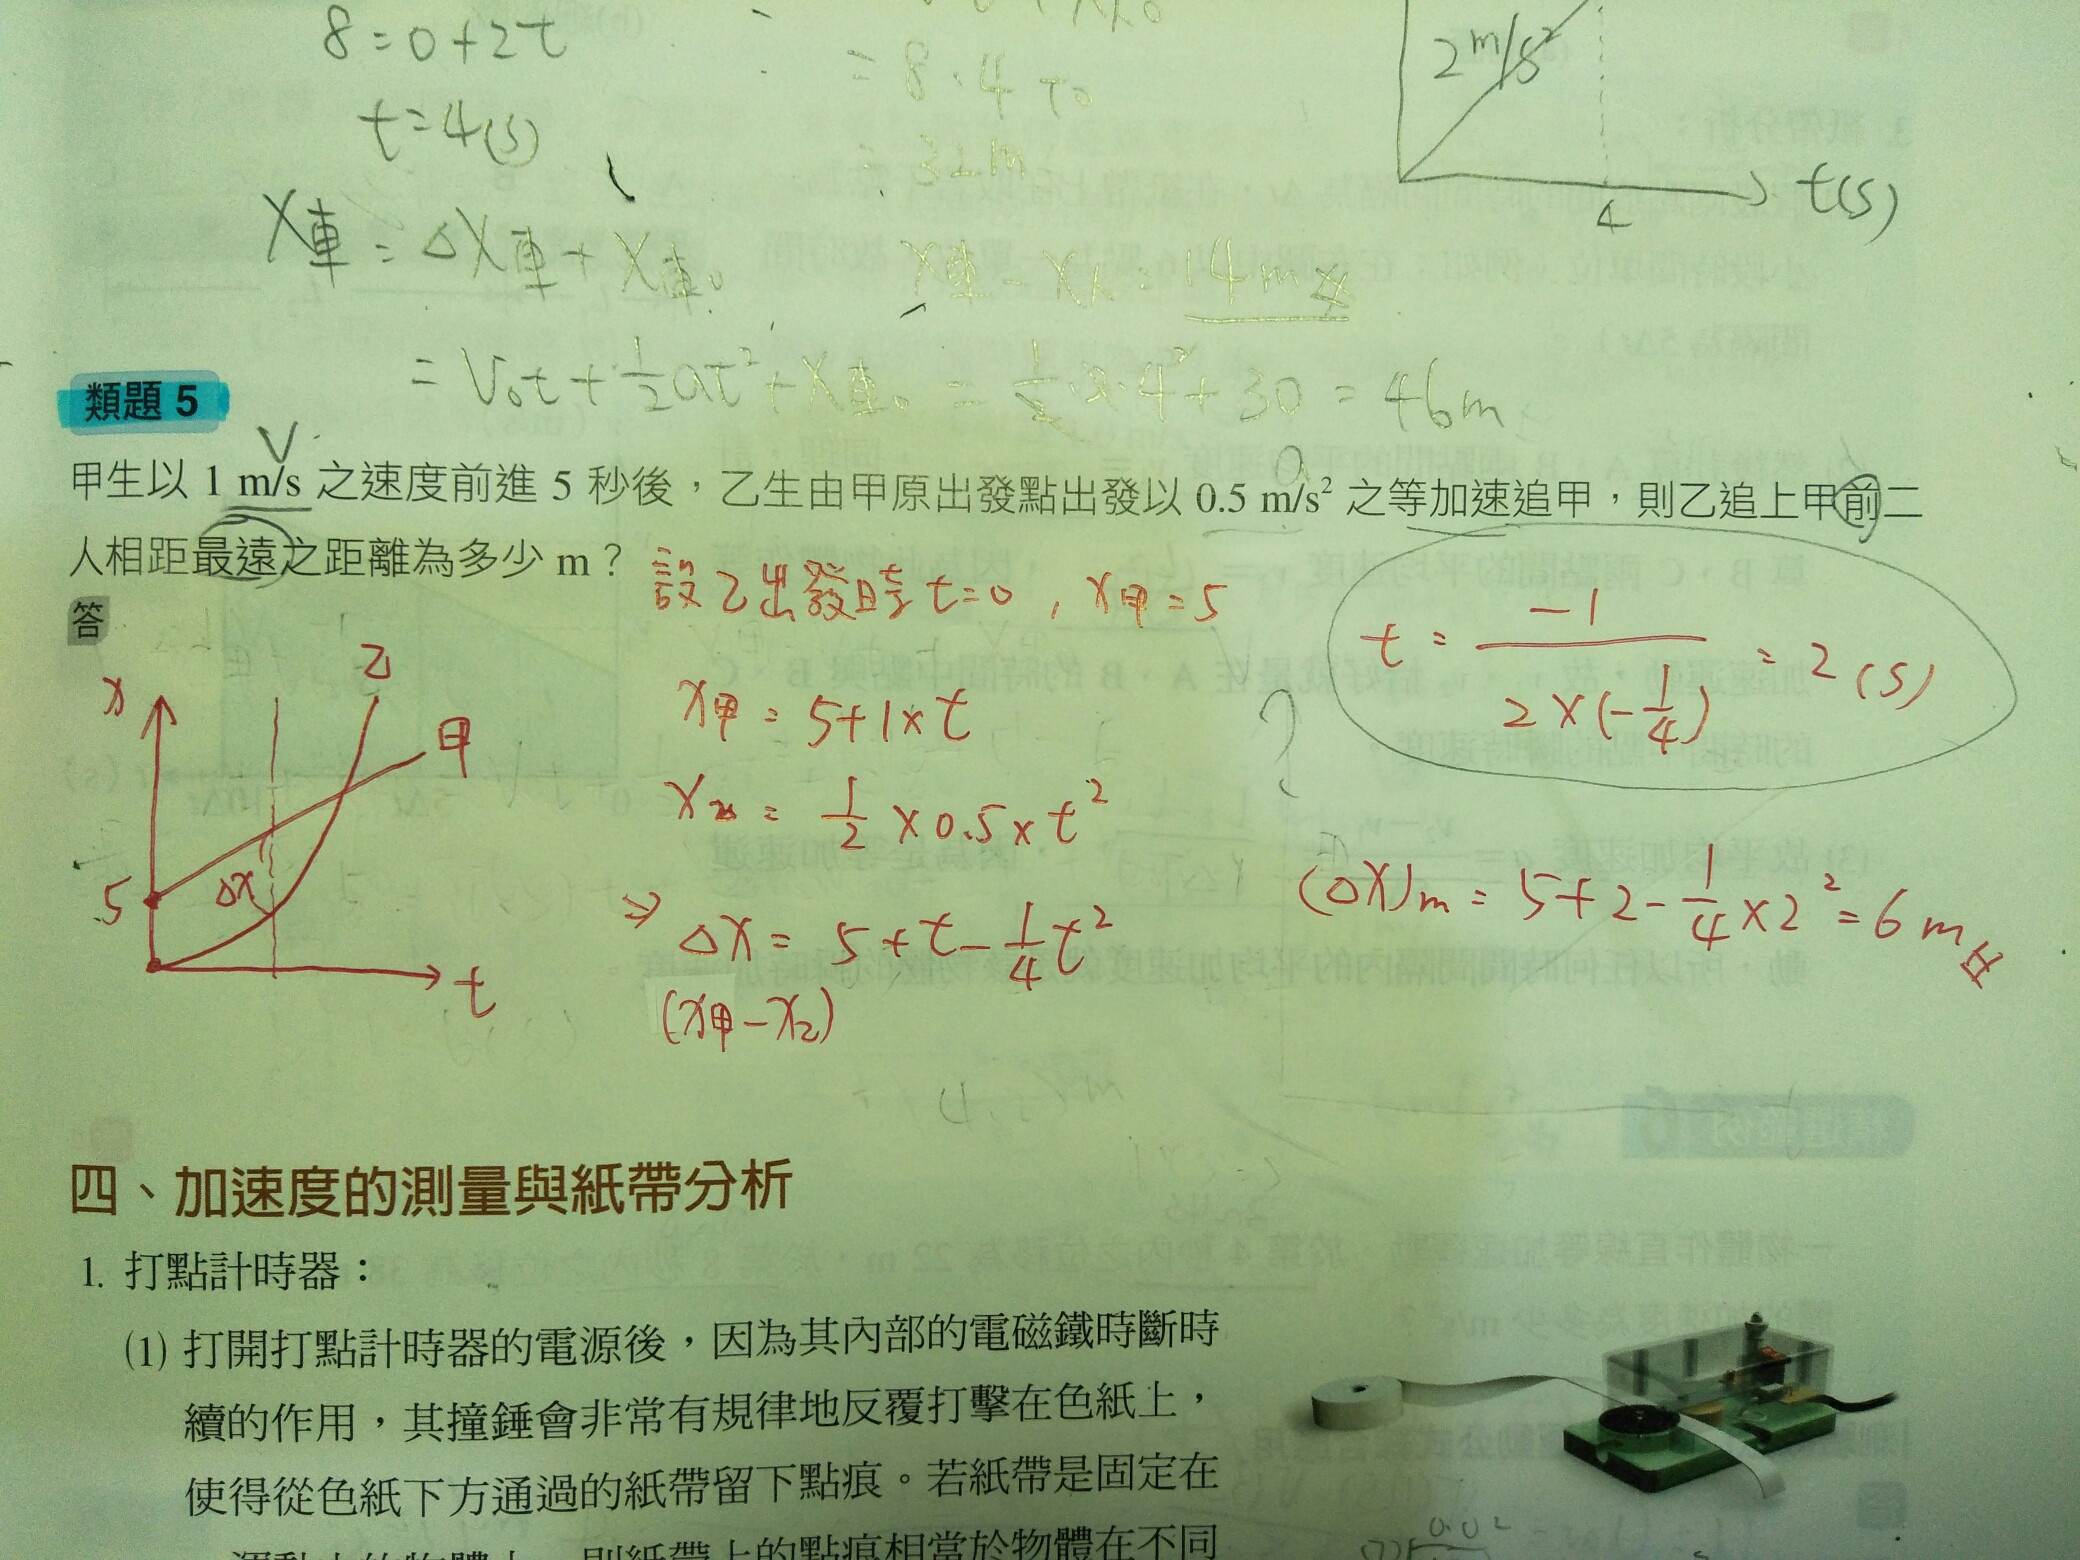 8=0+2t
= 8·4+0
t=4(s)
= 32m
2 m/s²
4
t(s)
X車 = ΔX車 + X車₀
X車 - X人 = 14m
= V₀t + 1/2 at² + X車₀ = 1/2·2·4² + 30 = 46m
類題 5
V
a
甲生以 1 m/s 之速度前進 5 秒後，乙生由甲原出發點出發以 0.5 m/s² 之等加速追甲，則乙追上甲前二
人相距最遠之距離為多少 m？
答
設乙出發時 t=0，x甲=5
x甲 = 5+1×t
x乙 = 1/2 ×0.5×t²
⇒ Δx = 5+t-1/4 t²
(x甲-x乙)
t = -1/(2×(-1/4)) = 2 (s)
(Δx)m = 5+2-1/4×2² = 6 m
x
乙
甲
5
Δx
t
四、加速度的測量與紙帶分析
1. 打點計時器：
(1) 打開打點計時器的電源後，因為其內部的電磁鐵時斷時
續的作用，其撞錘會非常有規律地反覆打擊在色紙上，
使得從色紙下方通過的紙帶留下點痕。若紙帶是固定在
則紙帶上的點痕相當於物體在不同